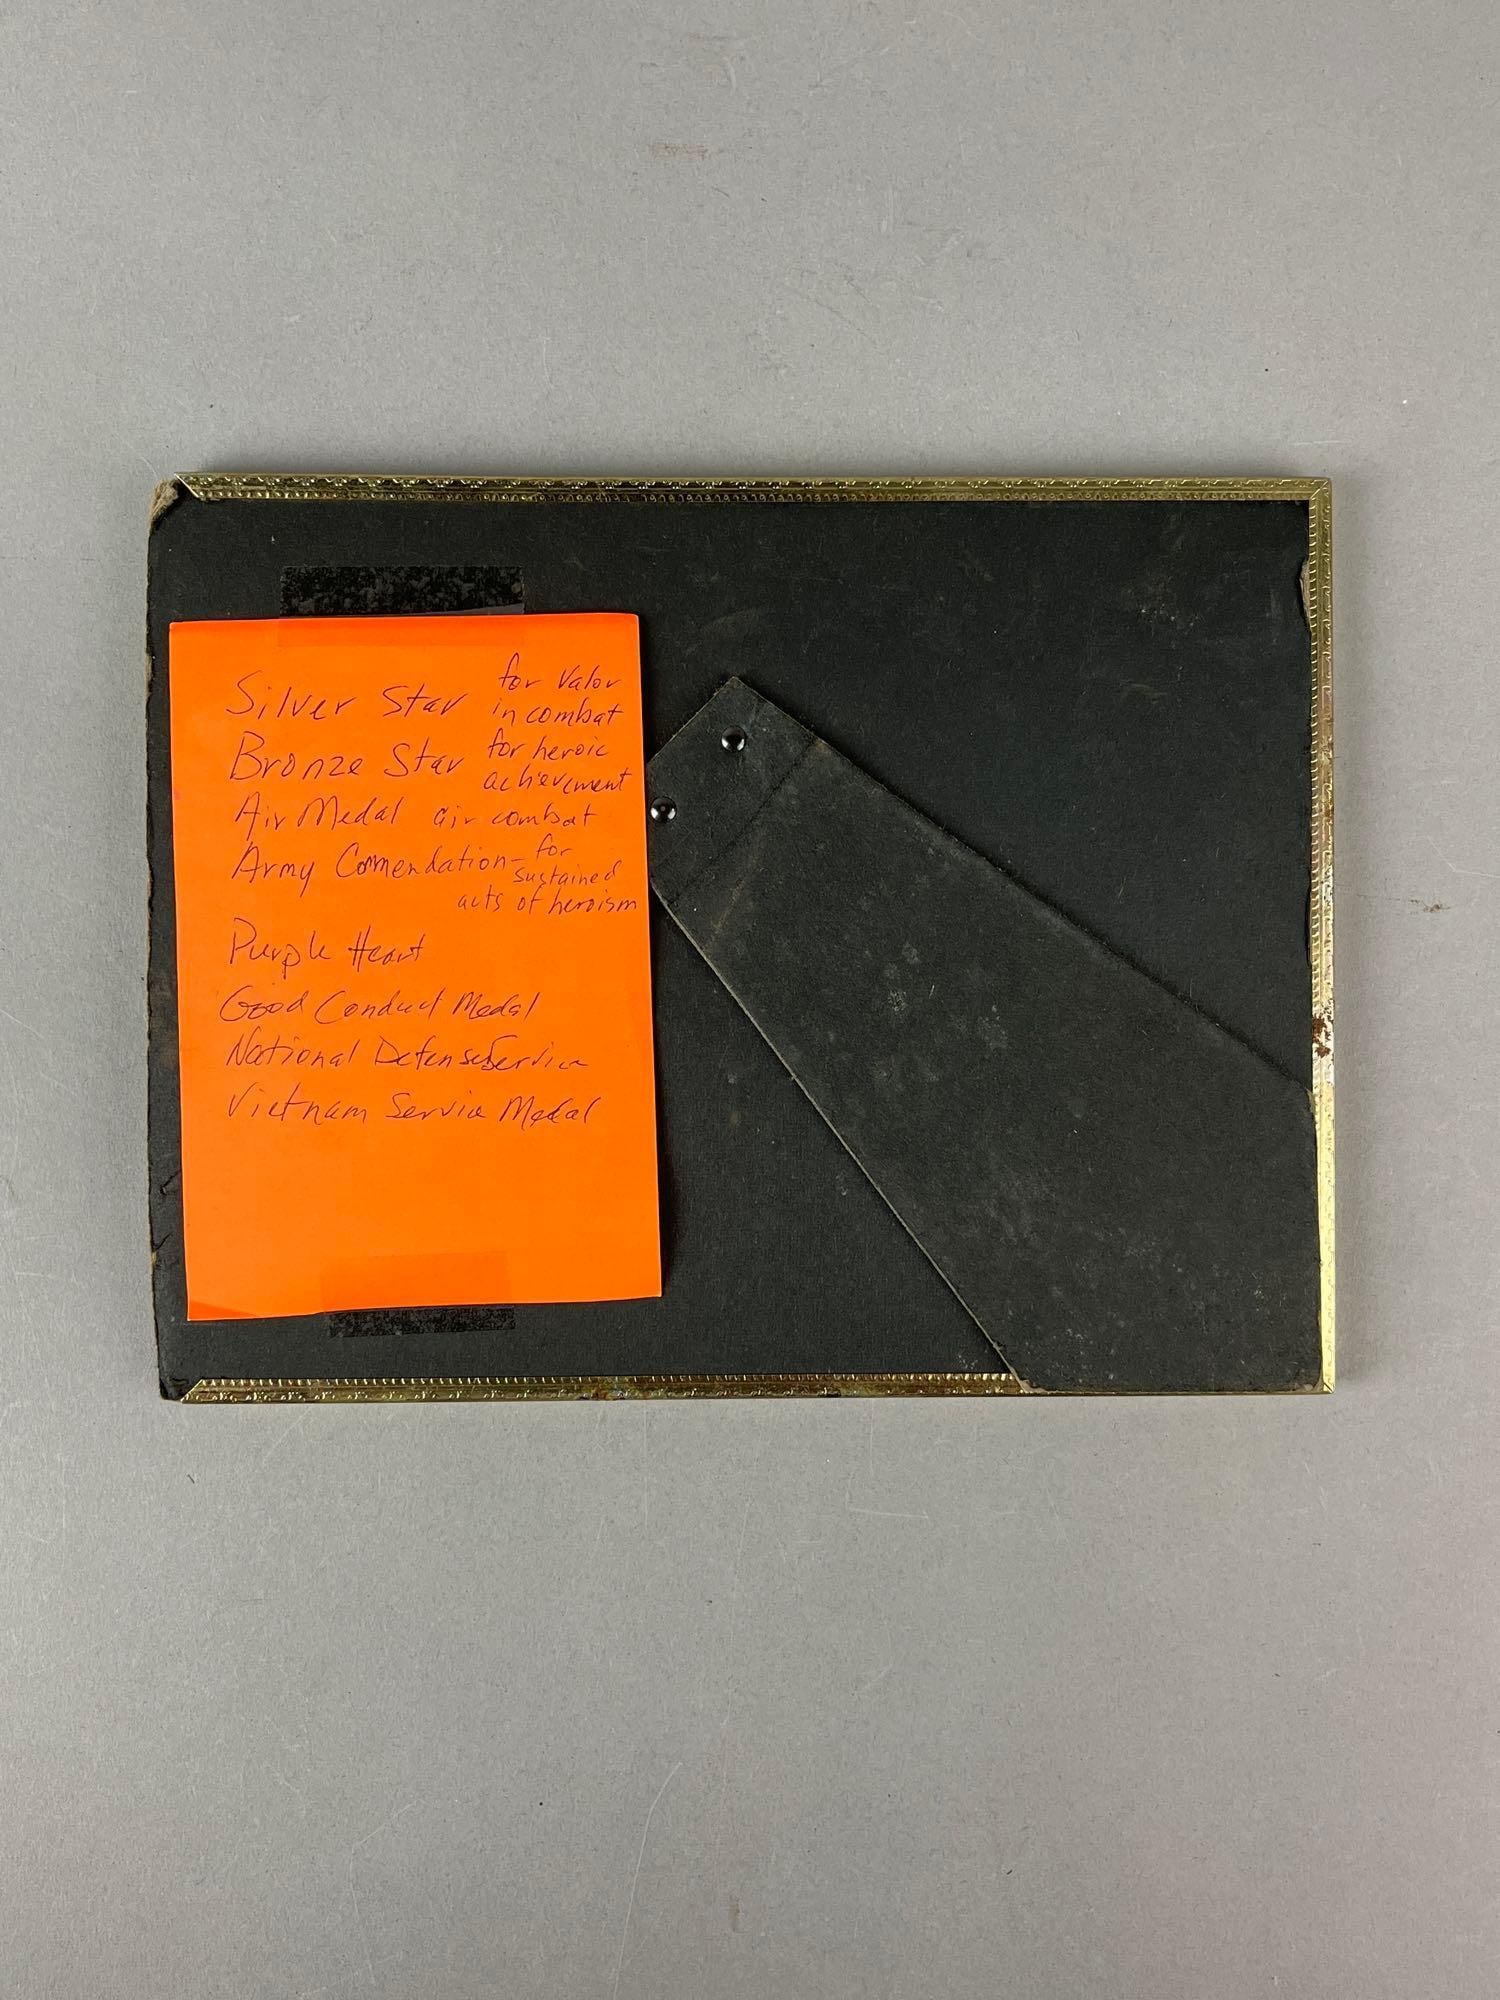 Silver Star for valor
in combat
Bronze Star for heroic
achievement
Air Medal air combat
Army Commendation - for
sustained
acts of heroism
Purple Heart
Good Conduct Medal
National Defense Service
Vietnam Service Medal